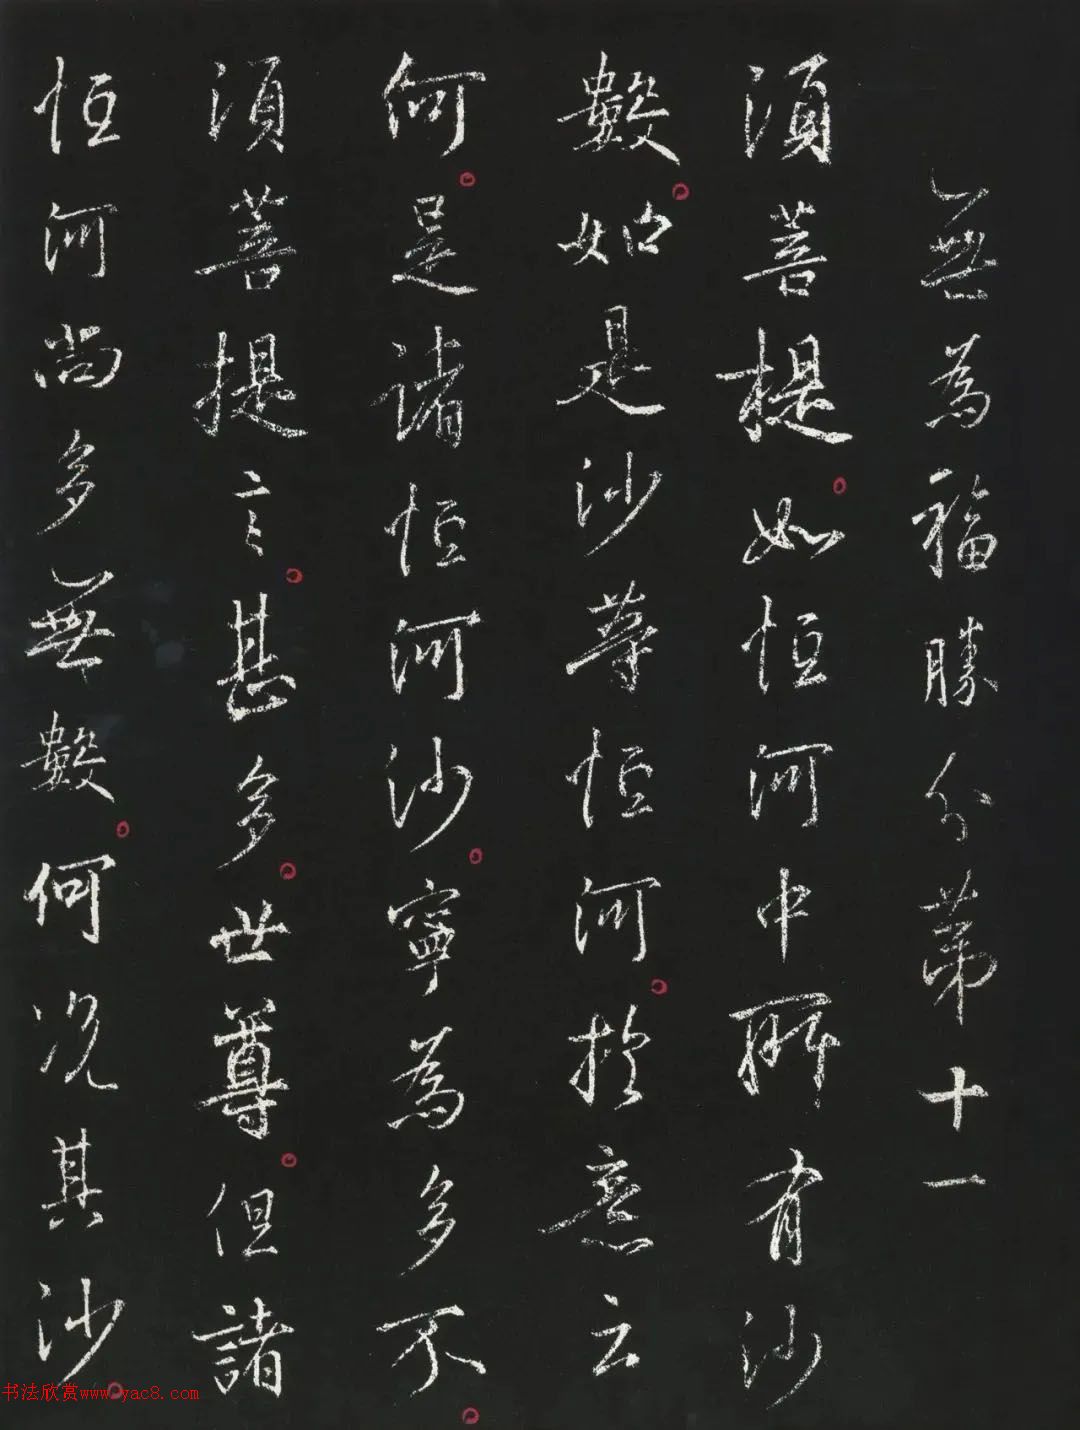 無為福勝分第十一
須菩提如恒河中所有沙
數如是沙等恒河於意云
何是諸恒河沙寧為多不
須菩提言甚多世尊但諸
恒河尚多無數何況其沙
书法欣赏www.yac8.com